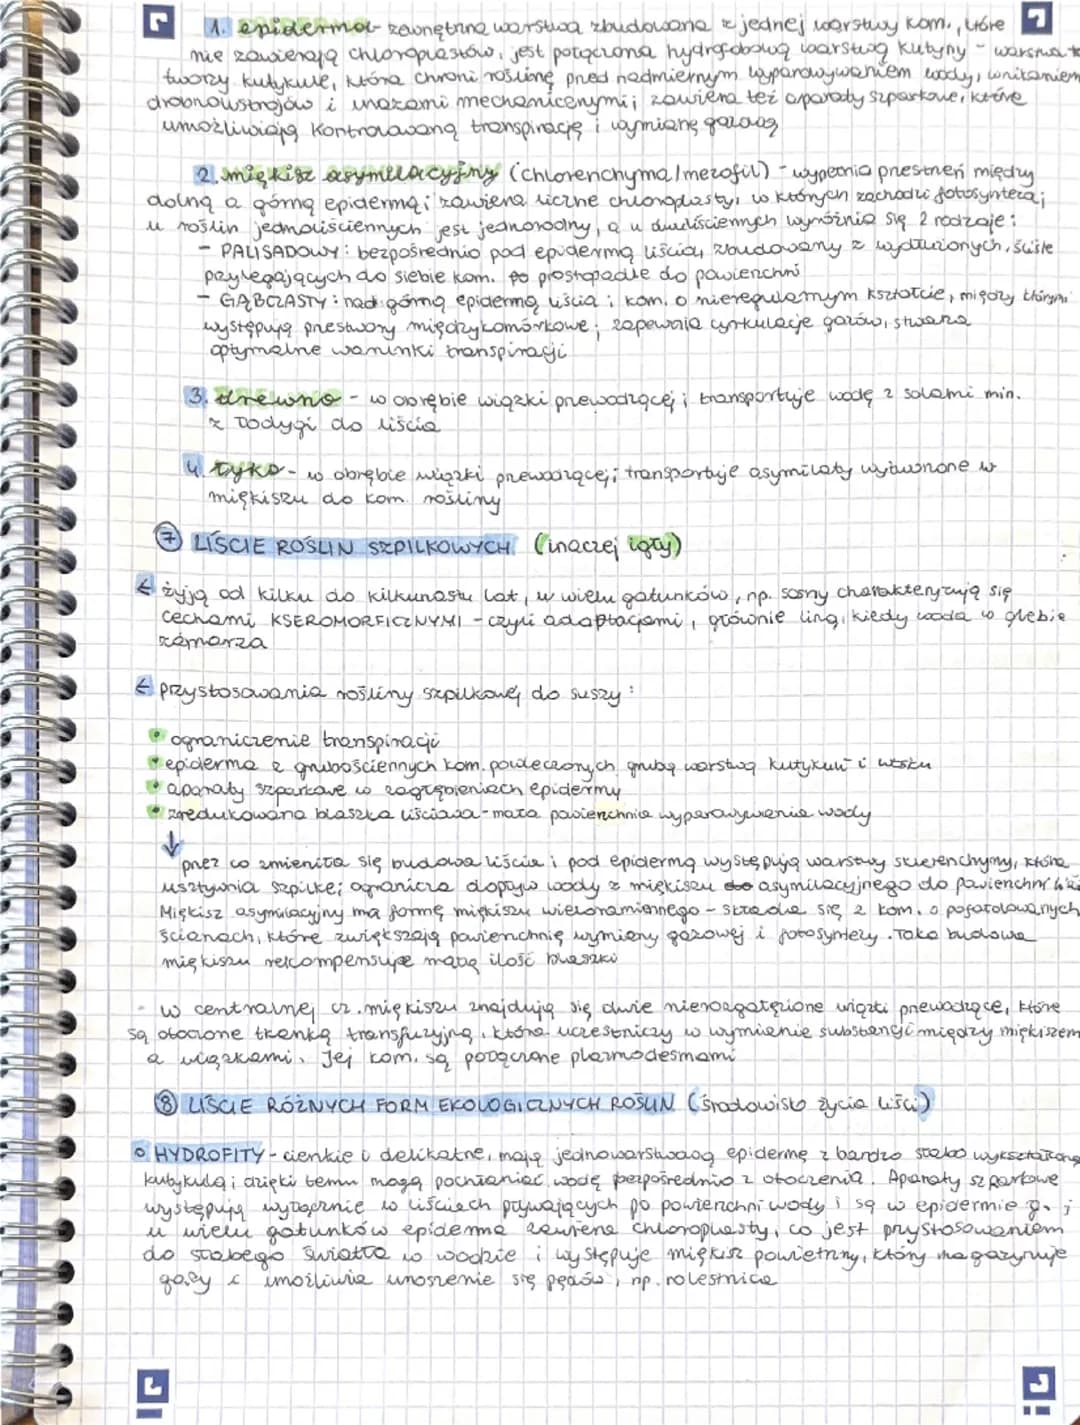 1. epiderma - zewnętrzna warstwa zbudowana z jednej warstwy kom., które
nie zawierają chloroplastów, jest połączona hydrofobową warstwą kutyny - warstwa ta
tworzy kutykulę, która chroni roślinę przed nadmiernym wyparowywaniem wody, wnikaniem
drobnoustrojów i urazami mechanicznymi; zawiera też aparaty szparkowe, które
umożliwiają kontrolowaną transpirację i wymianę gazową
2. miękisz asymilacyjny (chlorenchyma/mezofil) - wypełnia przestrzeń między
dolną a górną epidermą; zawiera liczne chloroplasty, w których zachodzi fotosynteza;
u roślin jednoliściennych jest jednorodny, a u dwuliściennych wyróżnia się 2 rodzaje:
- PALISADOWY: bezpośrednio pod epidermą liścia, zbudowany z wydłużonych, ściśle
przylegających do siebie kom. prostopadle do powierzchni
- GĄBCZASTY: nad górną epidermą liścia; kom. o nieregularnym kształcie, między którymi
występują przestwory międzykomórkowe; zapewnia cyrkulację gazów, stwarza
optymalne warunki transpiracji
3. drewno - w obrębie wiązki przewodzącej; transportuje wodę z solami min.
z łodygi do liścia
4. łyko - w obrębie wiązki przewodzącej; transportuje asymilaty wytworzone w
miękiszu do kom. rośliny
7 LIŚCIE ROŚLIN SZPILKOWYCH (inaczej igły)
← żyją od kilku do kilkunastu lat, w wielu gatunków, np. sosny charakteryzują się
cechami KSEROMORFICZNYMI - czyli adaptacjami, głównie zimą, kiedy woda w glebie
zamarza
← przystosowania rośliny szpilkowej do suszy:
• ograniczenie transpiracji
• epiderma z grubościennych kom. powleczonych grubą warstwą kutykuli i wosku
• aparaty szparkowe w zagłębieniach epidermy
• zredukowana blaszka liściowa - mała powierzchnia wyparowywania wody
↓
przez co zmieniła się budowa liścia; pod epidermą występują warstwy sklerenchymy, która
usztywnia szpilkę; ogranicza dopływ wody z miękiszu asymilacyjnego do powierzchni
Miękisz asymilacyjny ma formę miękiszu wieloramiennego - składa się z kom. o pofałdowanych
ścianach, które zwiększają powierzchnię wymiany gazowej i fotosyntezy. Taka budowa
miękiszu rekompensuje małą ilość blaszki
- w centralnej cz. miękiszu znajdują się dwie nierozgałęzione wiązki przewodzące, które
są otoczone tkanką transfuzyjną, która uczestniczy w wymianie substancji między miękiszem
a wiązkami. Jej kom. są połączone plazmodesmami
8 LIŚCIE RÓŻNYCH FORM EKOLOGICZNYCH ROŚLIN (środowisko życia liści)
○ HYDROFITY - cienkie i delikatne, mają jednowarstwową epidermę z bardzo słabo wykształconą
kutykulą; dzięki temu mogą pochłaniać wodę bezpośrednio z otoczenia. Aparaty szparkowe
występują wyłącznie w liściach pływających po powierzchni wody i są w epidermie g. ;
u wielu gatunków epiderma zawiera chloroplasty, co jest przystosowaniem
do słabego światła w wodzie; występuje miękisz powietrzny, który magazynuje
gazy i umożliwia unoszenie się pędów, np. rdestnica